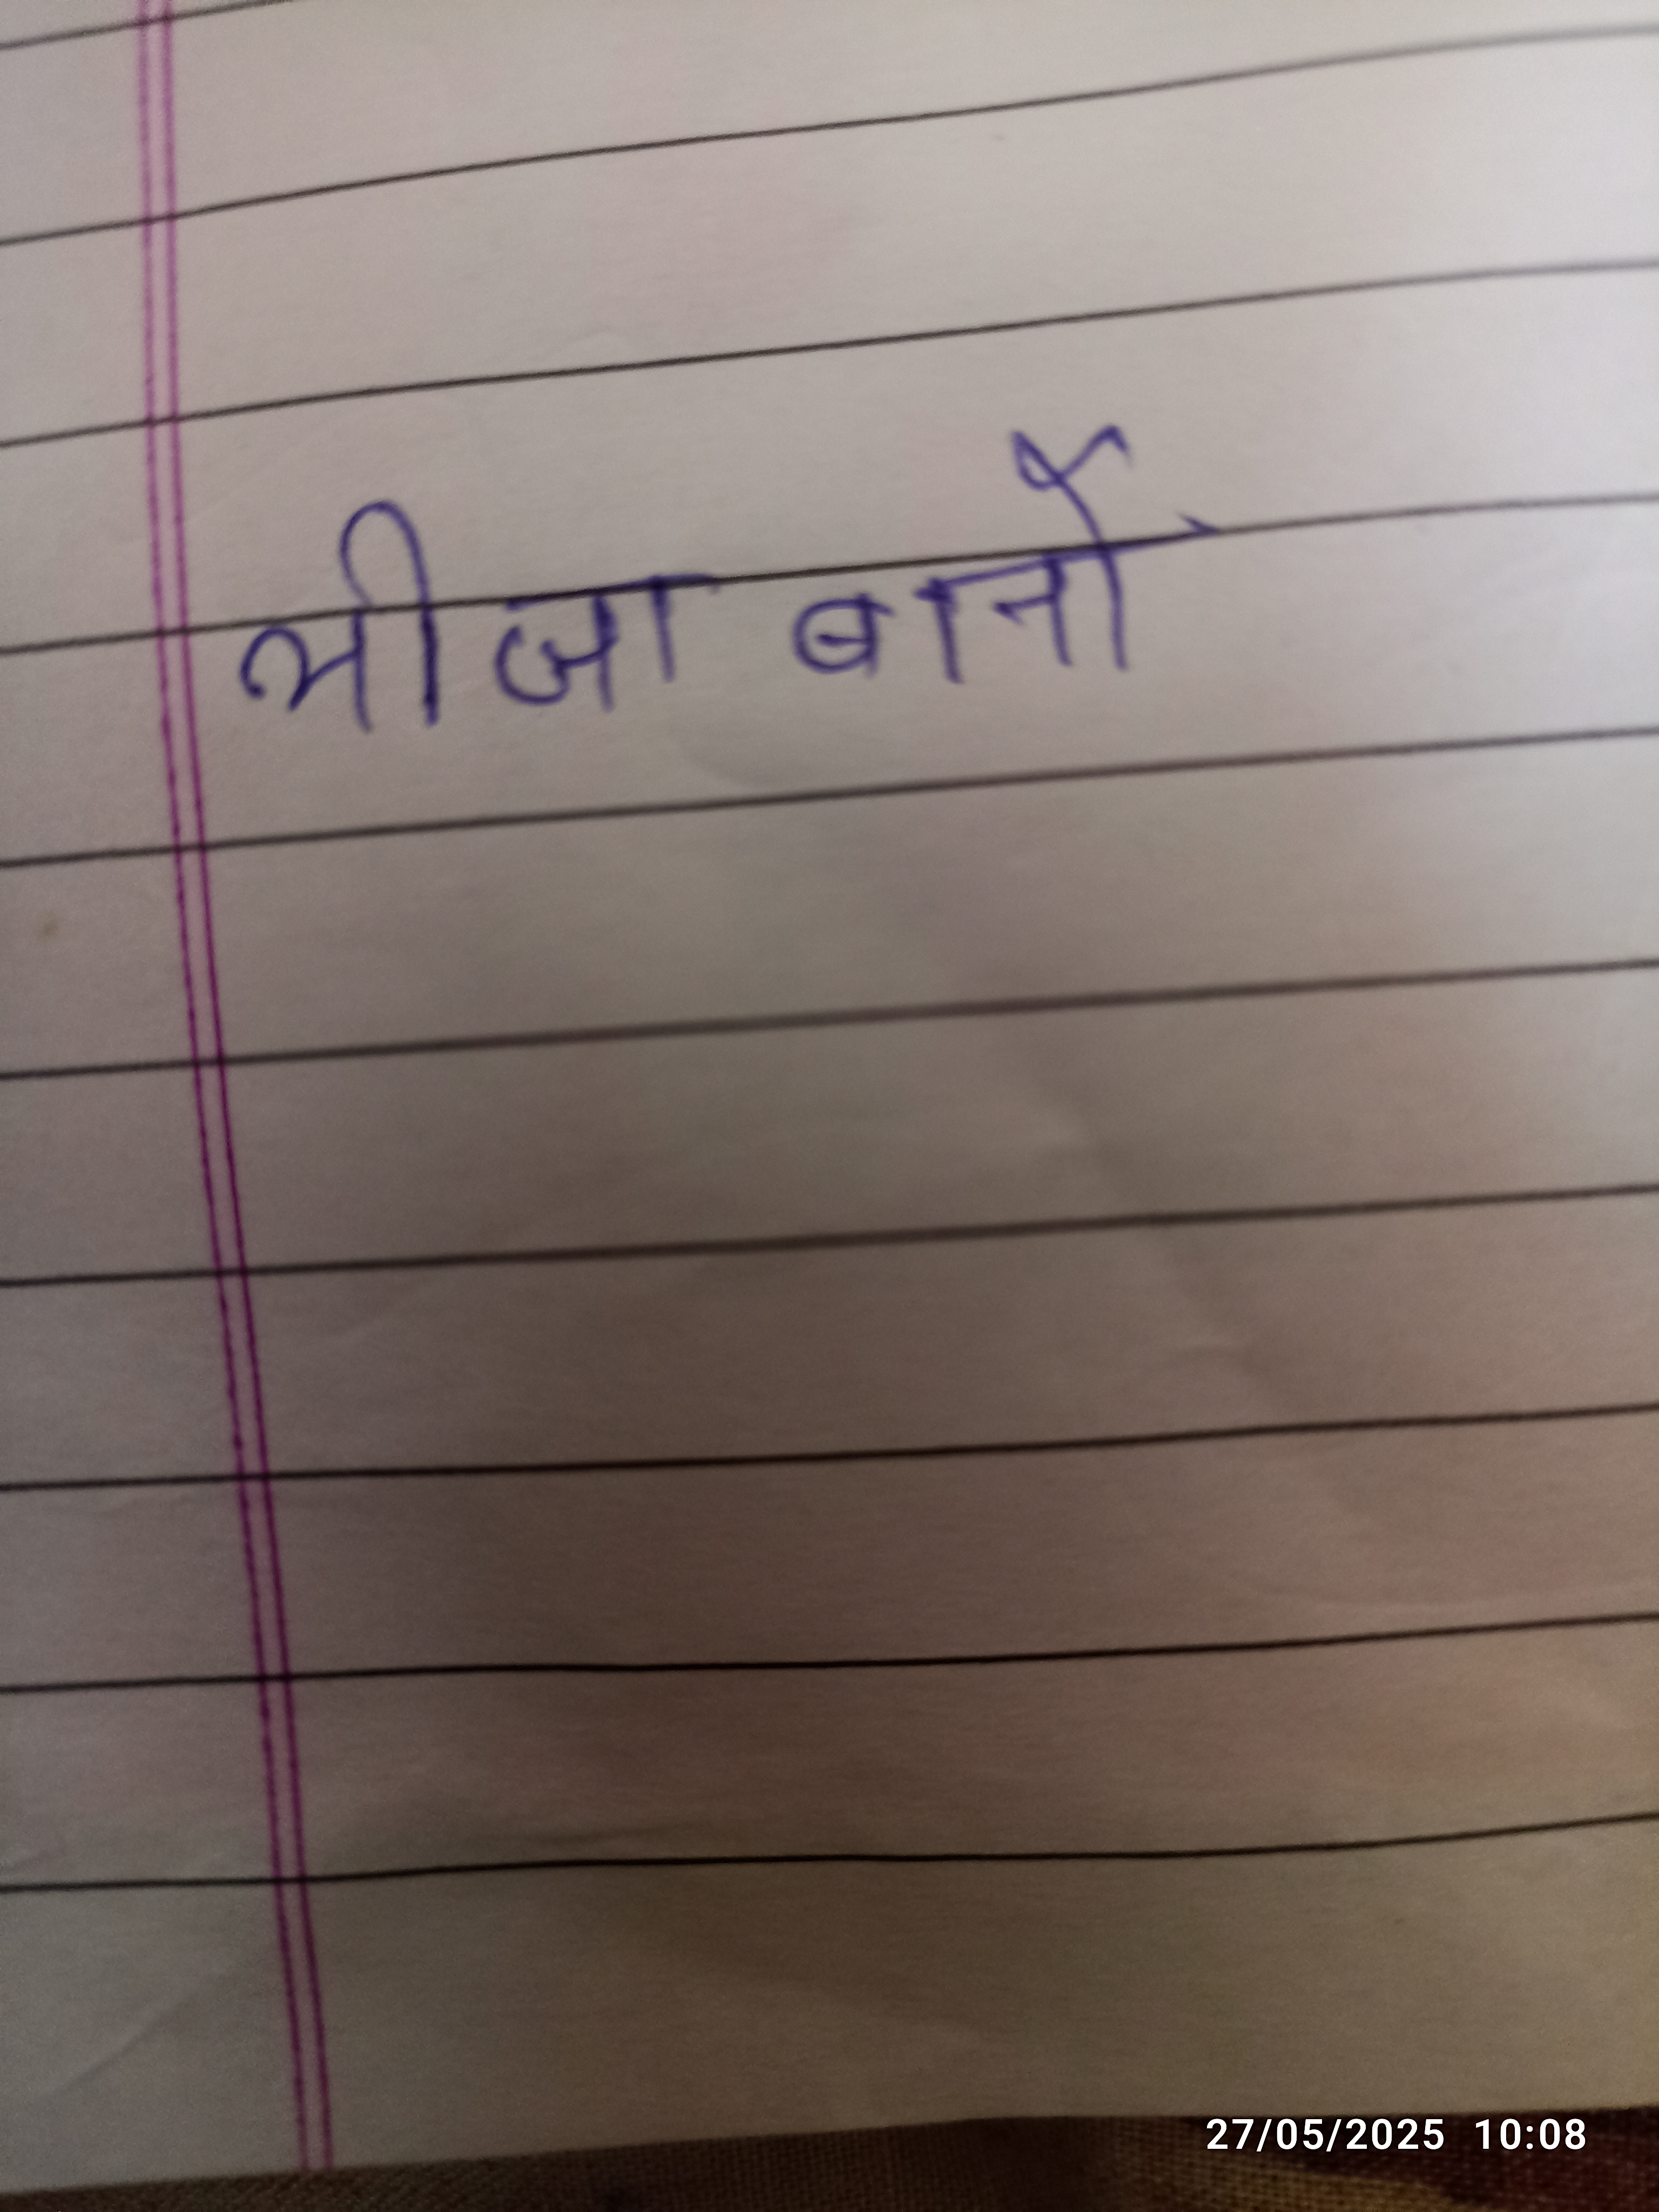 भीजा बानो
27/05/2025 10:08